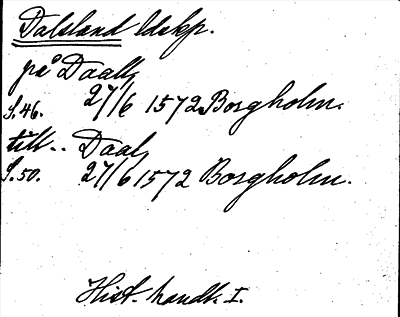 Dalsland ldskp.
på Daall
S. 46. 27/6 1572 Borgholm.
till.. Daal
S. 50. 27/6 1572 Borgholm.
Hist. handl. I.